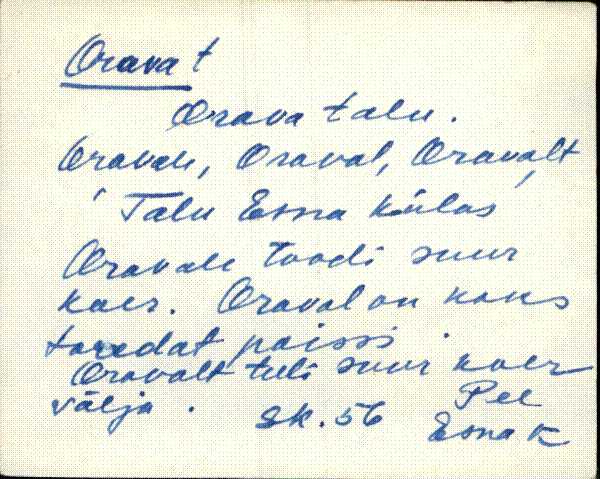 Orava t
Orava talu.
Oravale, Oraval, Oravalt
Talu Esna külas
Oravale toodi suur
koer. Oraval on kaks
toredat poissi.
Oravalt tuli suur koer
välja. Sk. 56 Pee
Esna k